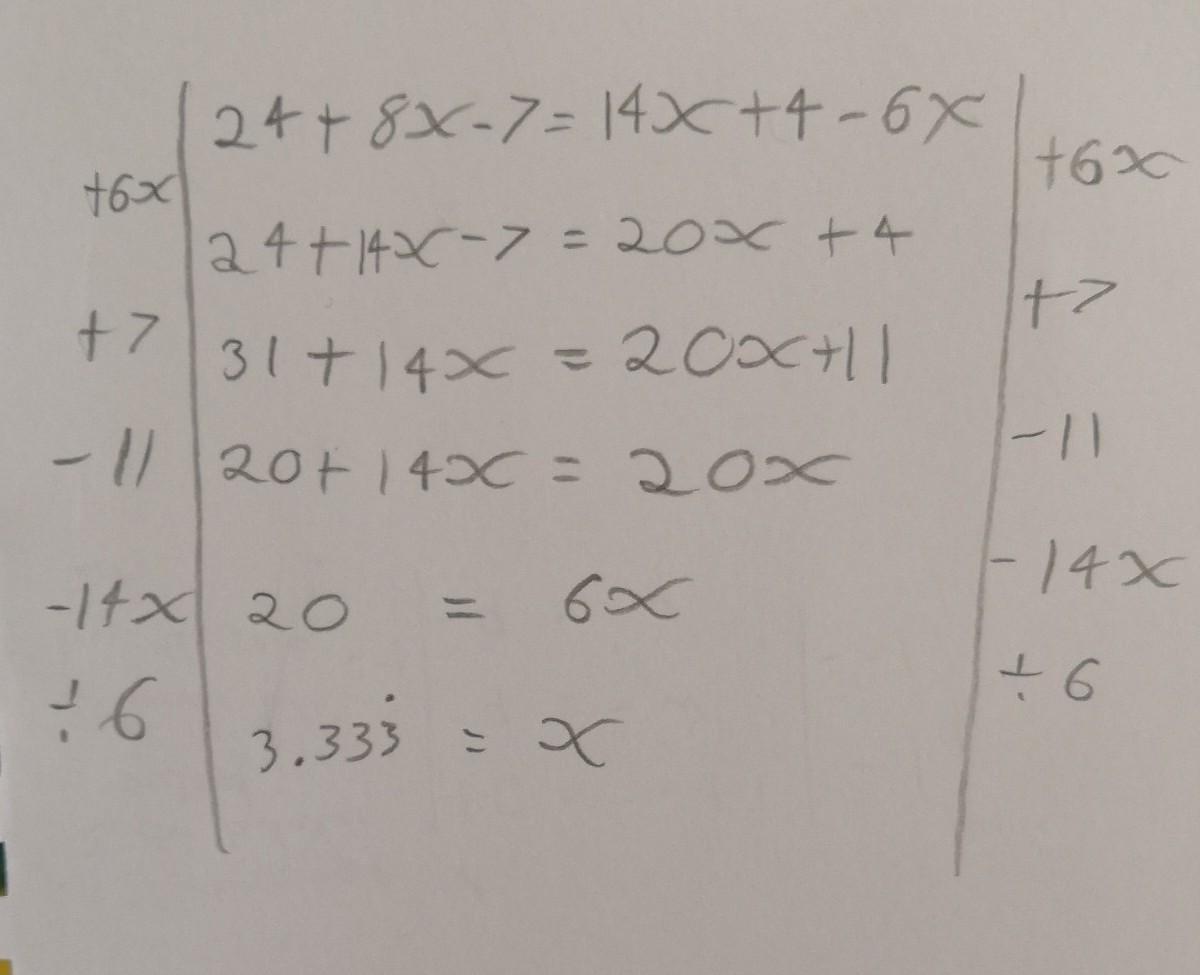 24 + 8x - 7 = 14x + 4 - 6x
+6x +6x
24 + 14x - 7 = 20x + 4
+7 +7
31 + 14x = 20x + 11
-11 20 + 14x = 20x -11
-14x 20 = 6x -14x
÷6 3.333̇ = x ÷6